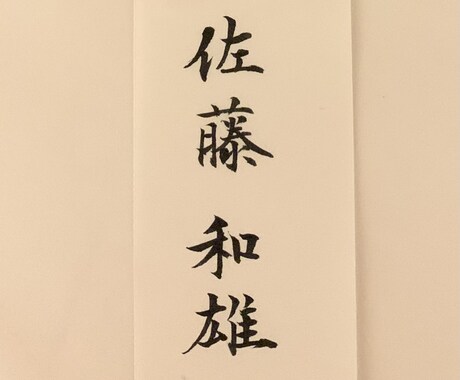 佐藤 和雄